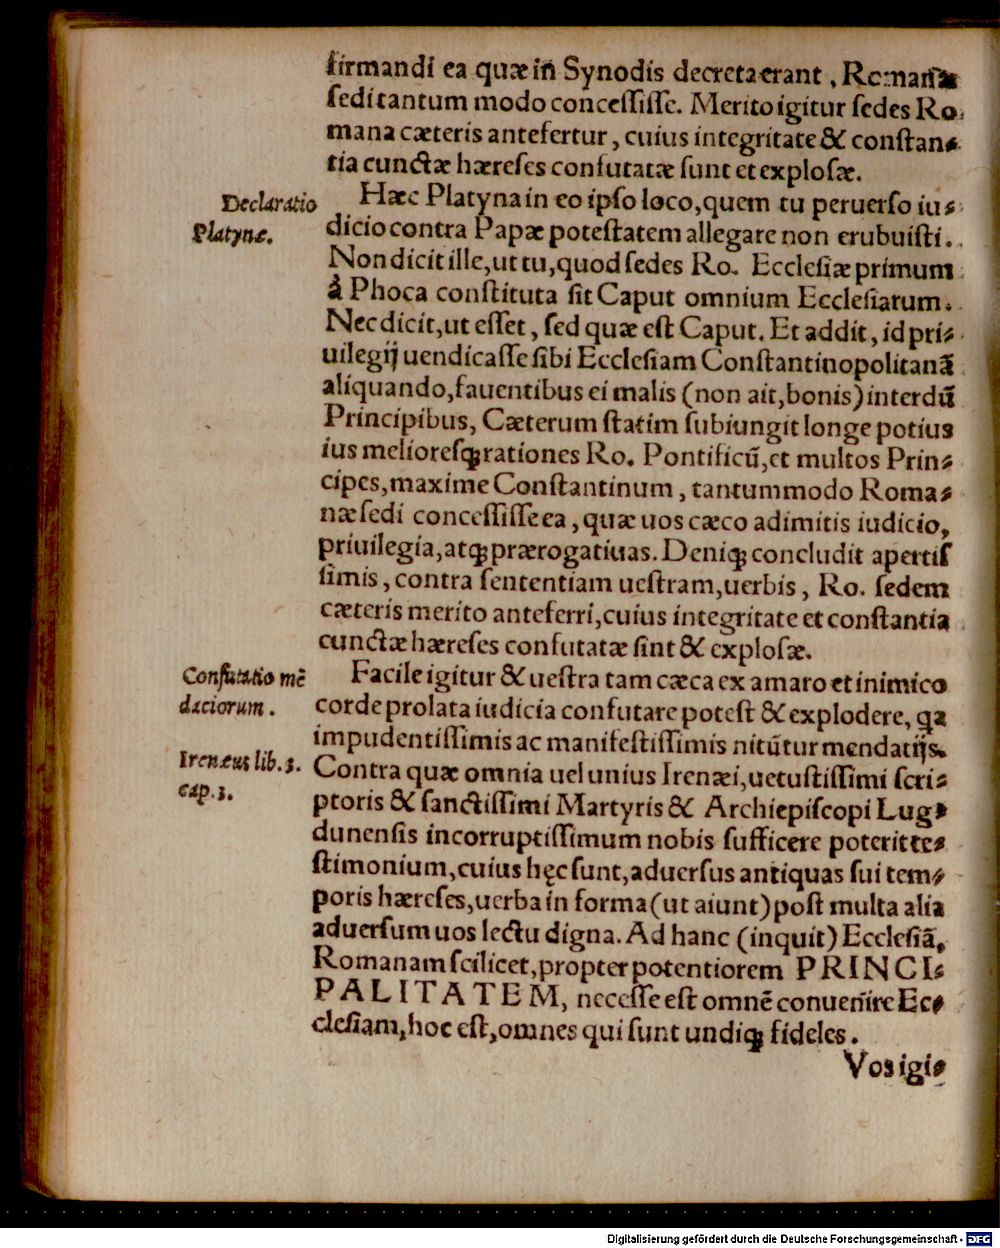 firmandi ea quæ iñ Synodis decreta erant, Romanæ
ſedi tantum modo conceſſiſſe. Merito igitur ſedes Ro
mana cæteris antefertur, cuius integritate & conſtan⸗
tia cunctæ hæreſes confutatæ ſunt et exploſæ.
Declaratio
Platynæ.
Hæc Platyna in eo ipſo loco, quem tu peruerſo iu⸗
dicio contra Papæ poteſtatem allegare non erubuiſti.
Non dicit ille, ut tu, quod ſedes Ro. Eccleſiæ primum
à Phoca conſtituta ſit Caput omnium Eccleſiarum.
Nec dicit, ut eſſet, ſed quæ eſt Caput. Et addit, id pri⸗
uilegij uendicaſſe ſibi Eccleſiam Conſtantinopolitanã
aliquando, fauentibus ei malis (non ait, bonis) interdũ
Principibus, Cæterum ſtatim ſubiungit longe potius
ius melioresꝗ rationes Ro. Pontificũ, et multos Prin⸗
cipes, maxime Conſtantinum, tantummodo Roma⸗
næ ſedi conceſſiſſe ea, quæ uos cæco adimitis iudicio,
priuilegia, atꝗ prærogatiuas. Deniꝗ concludit apertiſ
ſimis, contra ſententiam ueſtram, uerbis, Ro. ſedem
cæteris merito anteferri, cuius integritate et conſtantia
cunctæ hæreſes confutatæ ſint & exploſæ.
Confutatio mẽ
daciorum.
Irenæus lib. 3.
cap. 3.
Facile igitur & ueſtra tam cæca ex amaro et inimico
corde prolata iudicia confutare poteſt & explodere, qa
impudentiſſimis ac manifeſtiſſimis nitũtur mendatijs.
Contra quæ omnia uel unius Irenæi, uetuſtiſſimi ſcri⸗
ptoris & ſanctiſſimi Martyris & Archiepiſcopi Lug⸗
dunenſis incorruptiſſimum nobis ſufficere poterit te⸗
ſtimonium, cuius hęc ſunt, aduerſus antiquas ſui tem⸗
poris hæreſes, uerba in forma (ut aiunt) poſt multa alia
aduerſum uos lectu digna. Ad hanc (inquit) Eccleſiã,
Romanam ſcilicet, propter potentiorem PRINCI⸗
PALITATEM, neceſſe eſt omnẽ conuenire Ec⸗
cleſiam, hoc eſt, omnes qui ſunt undiꝗ fideles.
Vos igi⸗
Digitalisierung gefördert durch die Deutsche Forschungsgemeinschaft - DFG